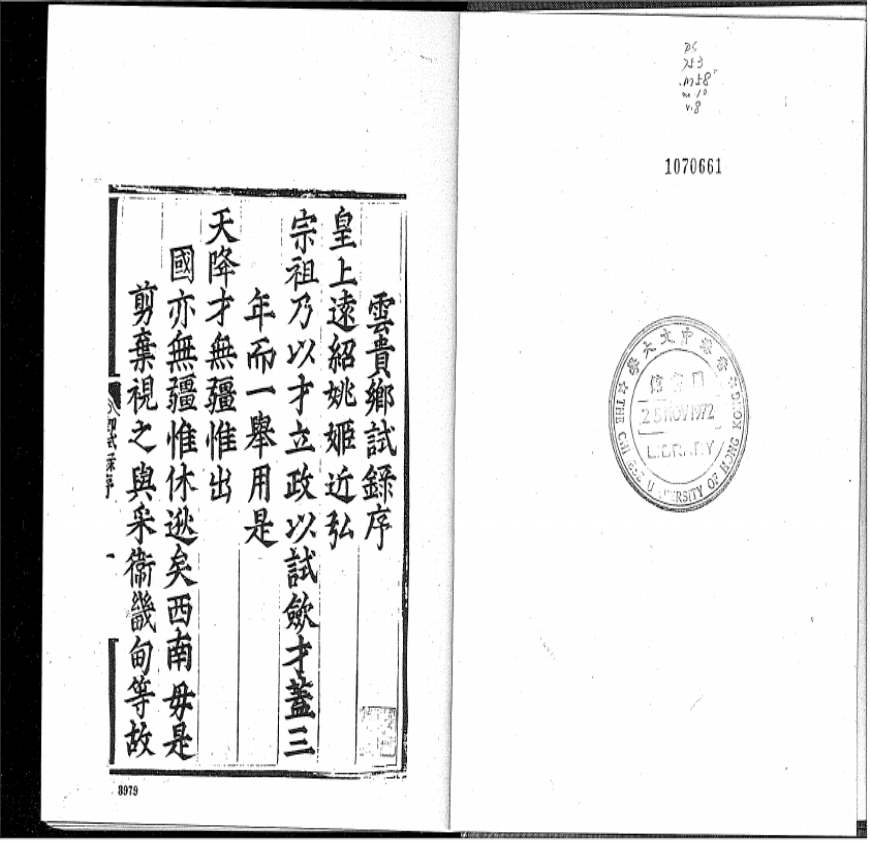 雲貴鄉試錄序
皇上遠紹姚姬近弘
宗祖乃以才立政以試斂才蓋三
年而一舉用是
天降才無疆惟出
國亦無疆惟休逖矣西南毋是
剪棄視之與采衞畿甸等故
8979
DS
753
.M58
no.10
v.8
1070661
香港中文大學
25 NOV 1972
LIBRARY
THE CHINESE UNIVERSITY OF HONG KONG